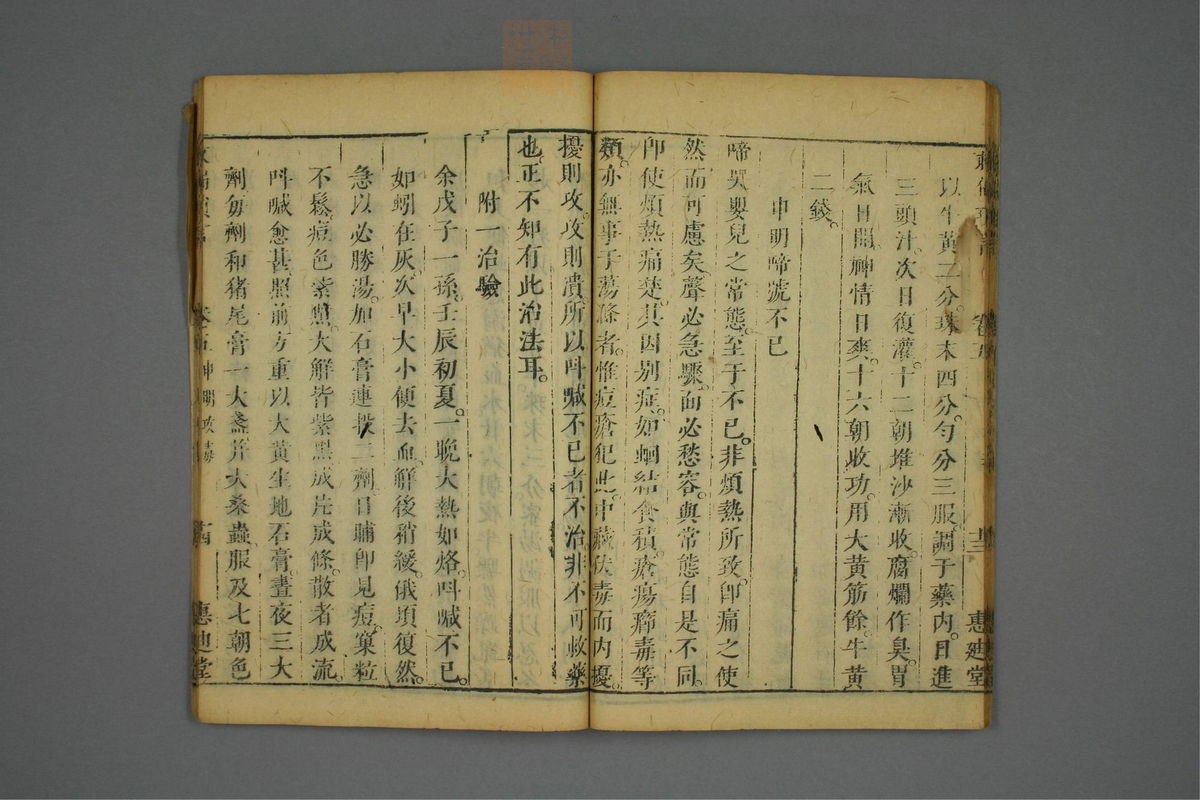 以牛黃二分珠末四分勻分三服調于藥內日進
三頭汁次日復灌十二朝堆沙漸收腐爛作臭胃
氣日開神情日爽十六朝收功用大黃筋餘牛黃
二錢
申明啼號不已
啼哭嬰兒之常態至于不已非煩熱所致卽痛之使
然而可慮矣聲必急驟面必愁容與常態自是不同
卽使煩熱痛楚其因別症如蛔結食積瘡瘍癤毒等
類亦無事于蕩滌者惟痘瘡犯此中藏伏毒而內擾
擾則攻攻則潰所以呌喊不已者不治非不可救藥
也正不知有此治法耳
附一治驗
余戊子一孫壬辰初夏一晚大熱如烙呌喊不已
如蚓在灰次早大小便去血解後稍緩俄頃復然
急以必勝湯加石膏連投二劑日晡卽見痘窠粒
不鬆痘色紫黑大解皆紫黑成片成條散者成流
呌喊愈甚照前方重以大黃生地石膏晝夜三大
劑每劑和猪尾膏一大盞幷大桑蟲服及七朝色
惠迪堂
惠廸堂